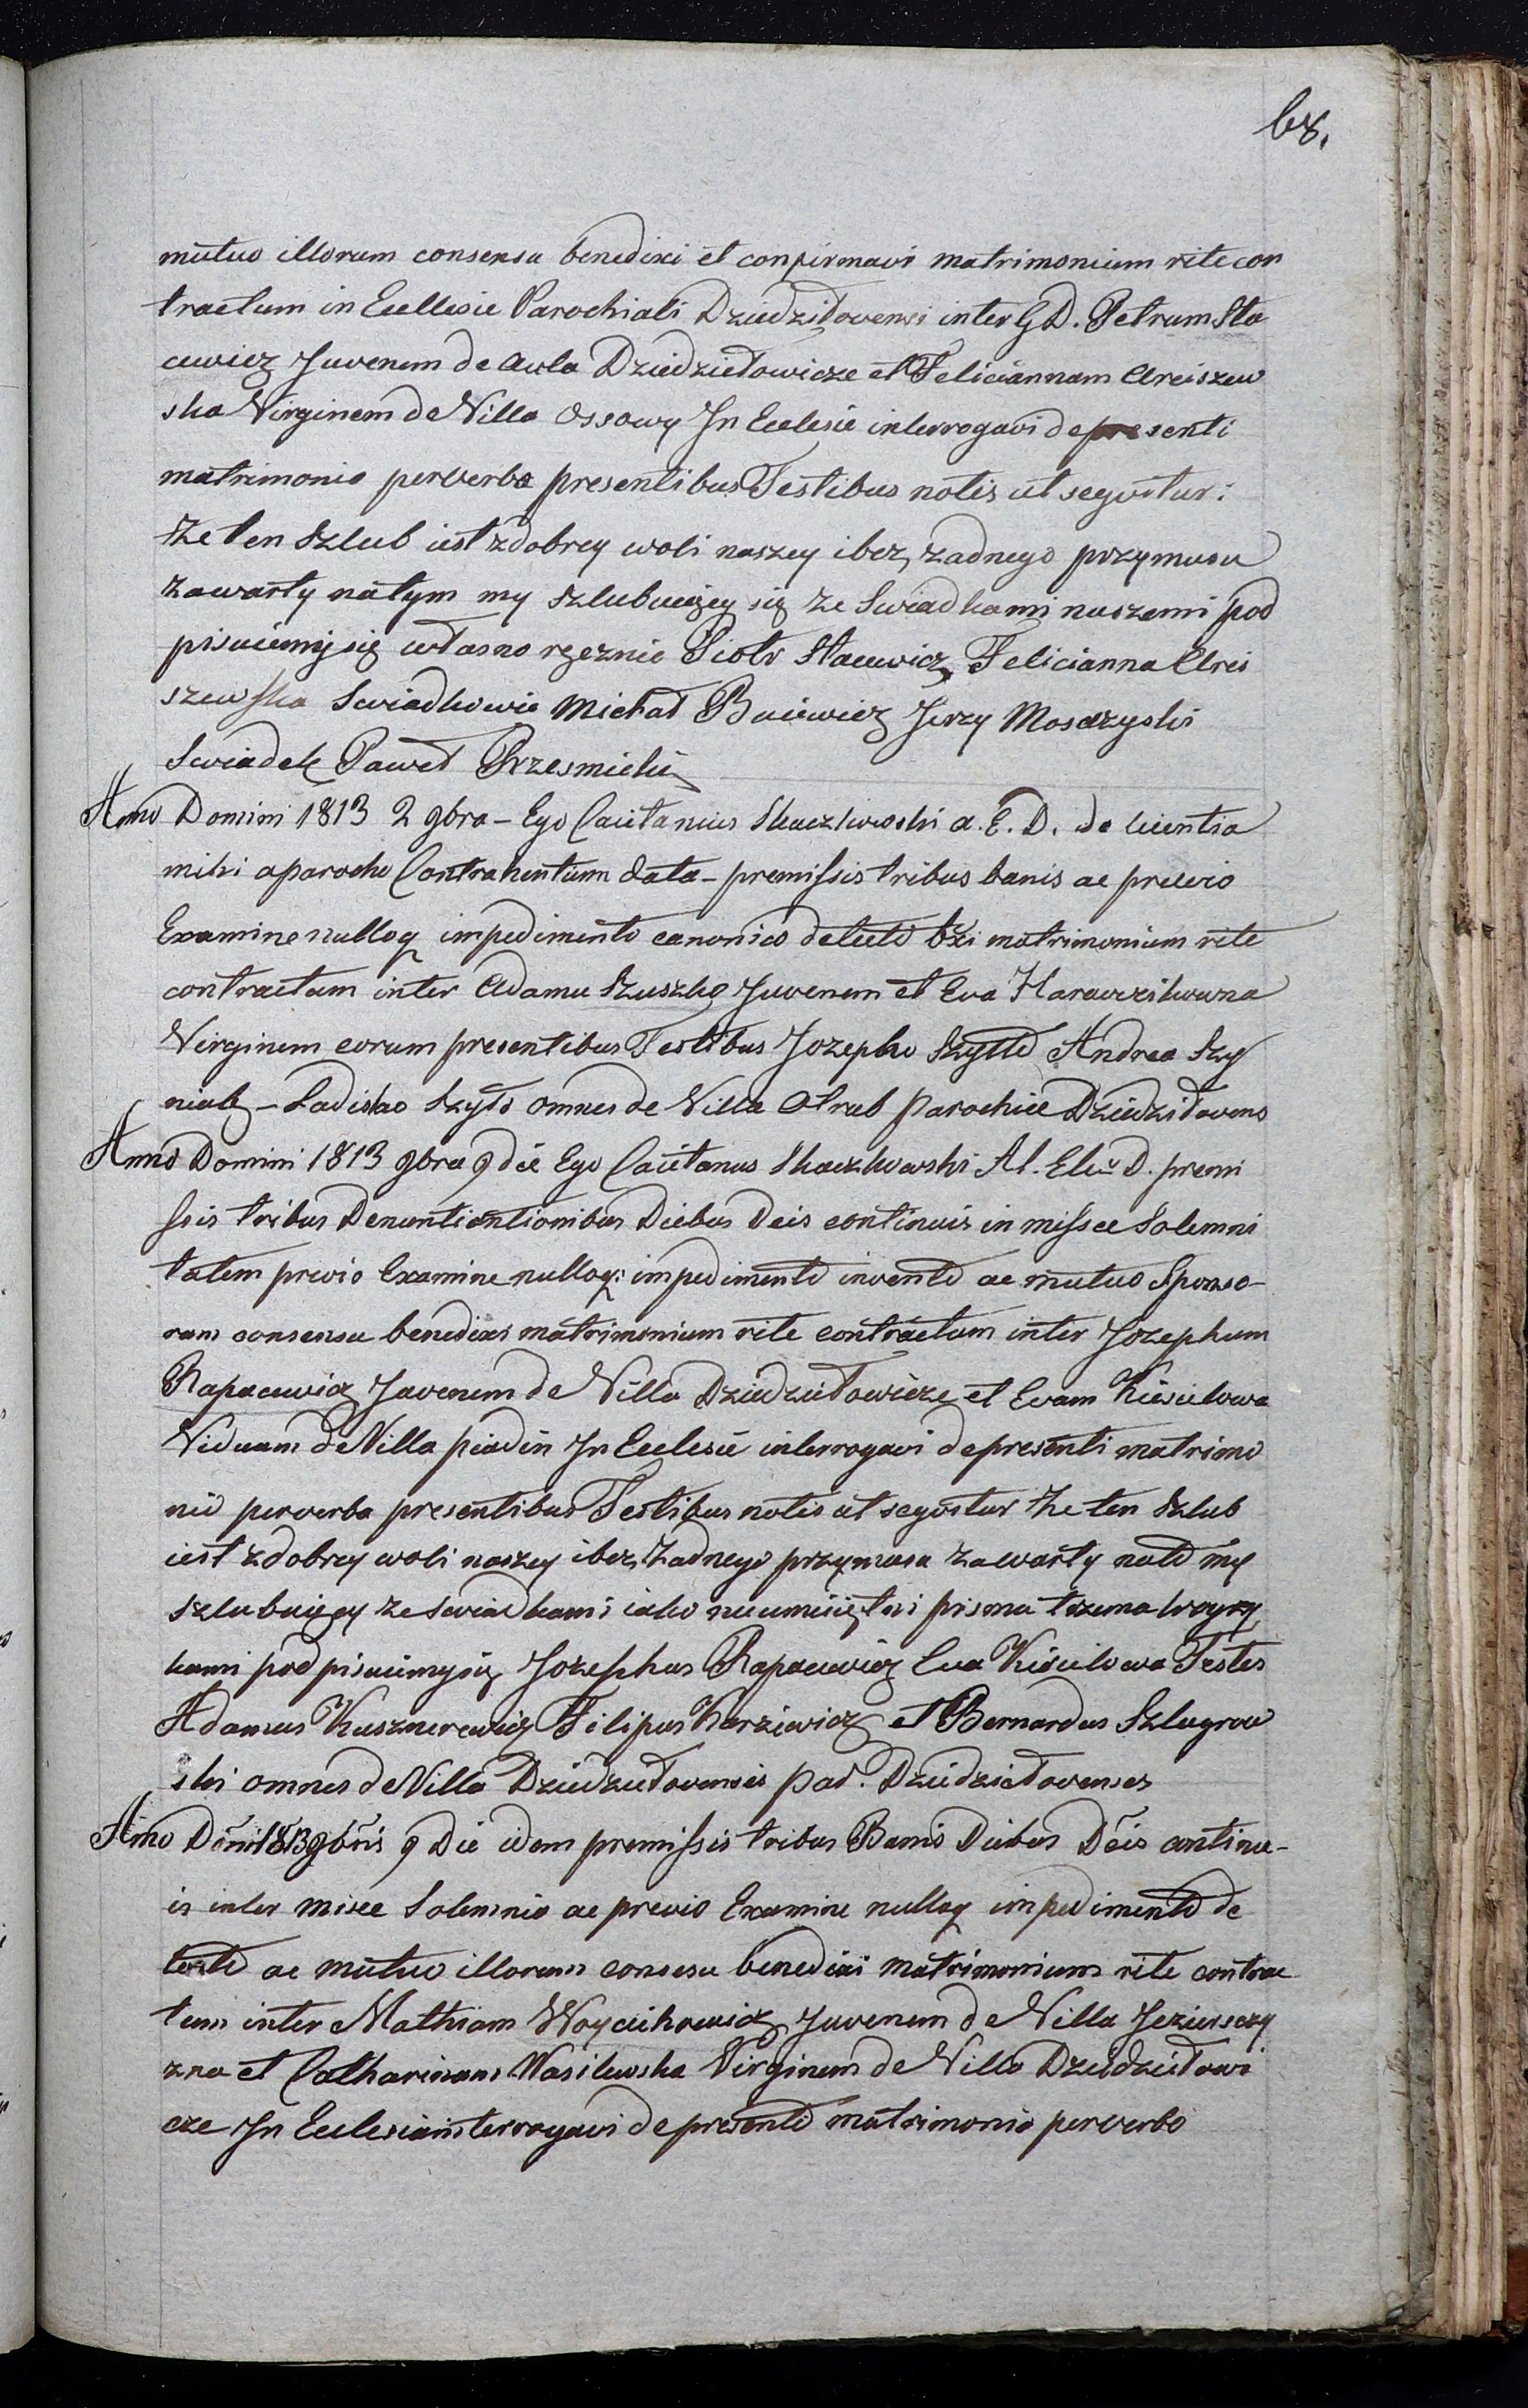 68.
mutuo illorum consensu benedixi et conpirmavi matrimonium rite con
tractum in Ecclesie Parochiali Dziedziłovensi inter G D. Petrum Sta
cewicz Juvenem de Aula Dziedziełowicze et Feliciannam Areiszew
ska Virginem de Villa Ossowy In Eclesie interrogavi de presenti
matrimonio perverba presentibus Testibus notis ut seqvitur:
że ten Szlub iest zdobrey woli naszey ibez zadnego przymusu
zawarty natym my szlubuiącey się ze Swiadkami naszemi pod
pisuiemy się własno ręcznie Piotr Stacewicz Felicianna Areis
szewska Swiadkowie Michał Buiewicz Jerzy Moszczyski
Swiadek Paweł Przesmicki
Anno Domini 1813 2 9bra – Ego Caietanus Skaczkowski A. E. D. de licentia
mihi aparocho Contrahentium data – premissis tribus banis ac previo
Examine nulloq impedimento canonico detecto bxi matrimonium rite
contractum inter Adamu Szuszko Juvenem et Eva Harawzikowna
Virginem eorum presentibus Testibus Jozepho Szyłło Andrea Szy
niak – Ladislao Szyło omnes de Villa Otrub Parochiæ Dziedziłovens
Anno Domini 1813 9bra 9 die Ego Caietanus Skaczkowski Al. Elu D. premi
ssis tribus Denuntiantionibus Diebus Deis continuis in missæ Solemni
tatem previo Examine nulloq: impedimento invento ac mutuo Sponso-
rum consensu benedixi matrimonium rite contractum inter Jozephum
Rapacewicz Juvenem de Villa Dziedziełowicze et Evam Kisielowa
Viduam de Villa piadin In Eclesie interrogavi depresenti matrimo
nio perverba presentibus Testibus notis ut seqvitur że ten Szlub
iest zdobrey woli naszey ibez żadnego przymusu zawarty nato my
szlubuiącey ze swiadkami iako nieumieiętni pisma trzema krzyży
kami podpisuiemysię Jozephus Rapacewicz Eva Kisielowa Testes
Adamus Kusznerewicz Filipus Karziewicz et Bernardus Szlugrow
ski omnes de Villa Dziedziełovensis par. Dziedziełovenses
Anno Dōni 1813 9bris 9 Die idem premissis tribus Banis Diebus Deis continu-
is inter misæ Solemnia ac previo Examine nulloq impedimento de
tecto ac mutuo illorum consesu benedixi matrimonium rite contrac
tum inter Mathiam Woyciehowicz Juvenem de Villa Jezierszczy
zna et Catharinam Wasilewska Virginem de Villa Dziedziełowi
cze In Eclesia interrogavi depresento matrimonio perverba